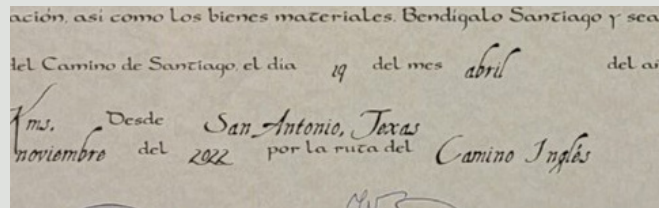 ación, así como los bienes materiales. Bendígalo Santiago y sea
del Camino de Santiago, el dia 19 del mes abril del
Kms. Desde San Antonio, Texas
noviembre del 2022 por la ruta del Camino Inglés